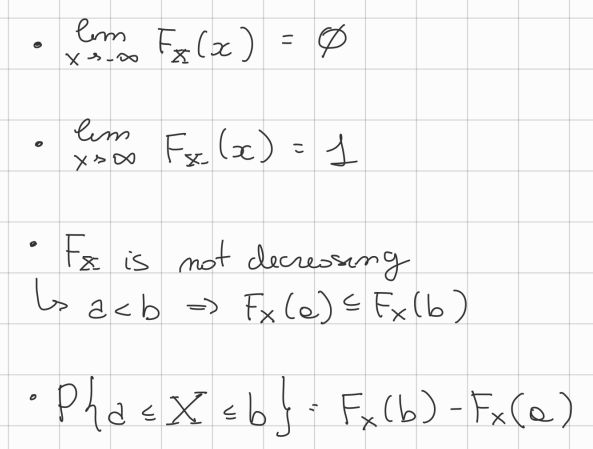 • lim x→-∞ F_X(x) = ∅
• lim x→∞ F_X(x) = 1
• F_X is not decreasing
↳ a<b ⇒ F_X(a) ≤ F_X(b)
• P{a ≤ X ≤ b} = F_X(b) - F_X(a)